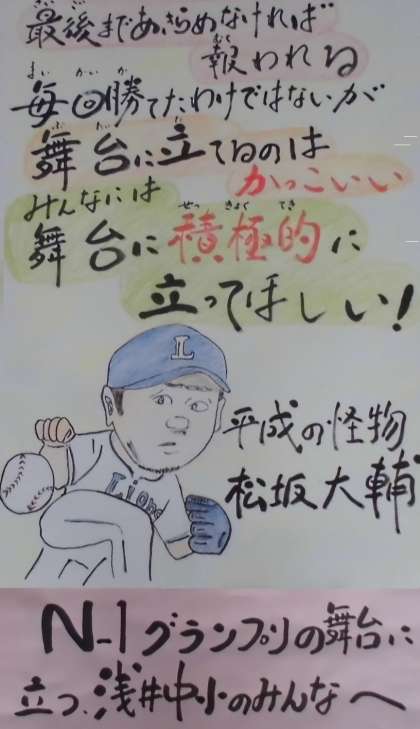 最後まであきらめなければ
報われる
毎回勝てたわけではないが
舞台に立てるのは
かっこいい
みんなには
舞台に積極的に
立ってほしい!
L
Lions
平成の怪物
松坂大輔
N-1グランプリの舞台に
立つ、浅井中小のみんなへ